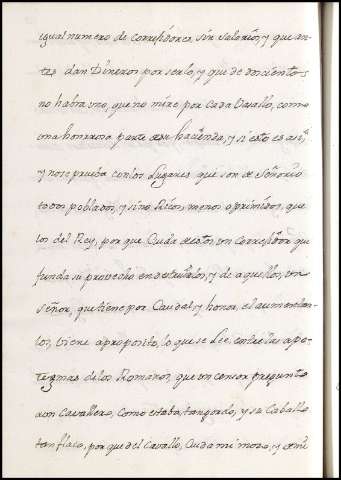 igual numero de correxidores, sin salarios, y que an-
tes dan Dineros por serlo, y que de docientos
no habra uno, que no mire por Cada Vasallo, como
una honrrosa parte de su hacienda, y si esto es assi,
y no se prueba con los Lugares que son de Señorio
todos poblados, y si no Ricos, menos oprimidos, que
los del Rey, por que Cuida de estos un Correxidor que
funda su provecho en destruirlos, y de aquellos, un
Señor, que tiene por Caudal, y honor, el aumentar-
los, viene aproposito, lo que se Lee, entre las apo-
tegmas de los Romanos, que un censor pregunto
a un Cavallero, Como estaba tan gordo, y su Caballo
tan flaco, por que del Cavallo, Cuida mi mozo, y de mi